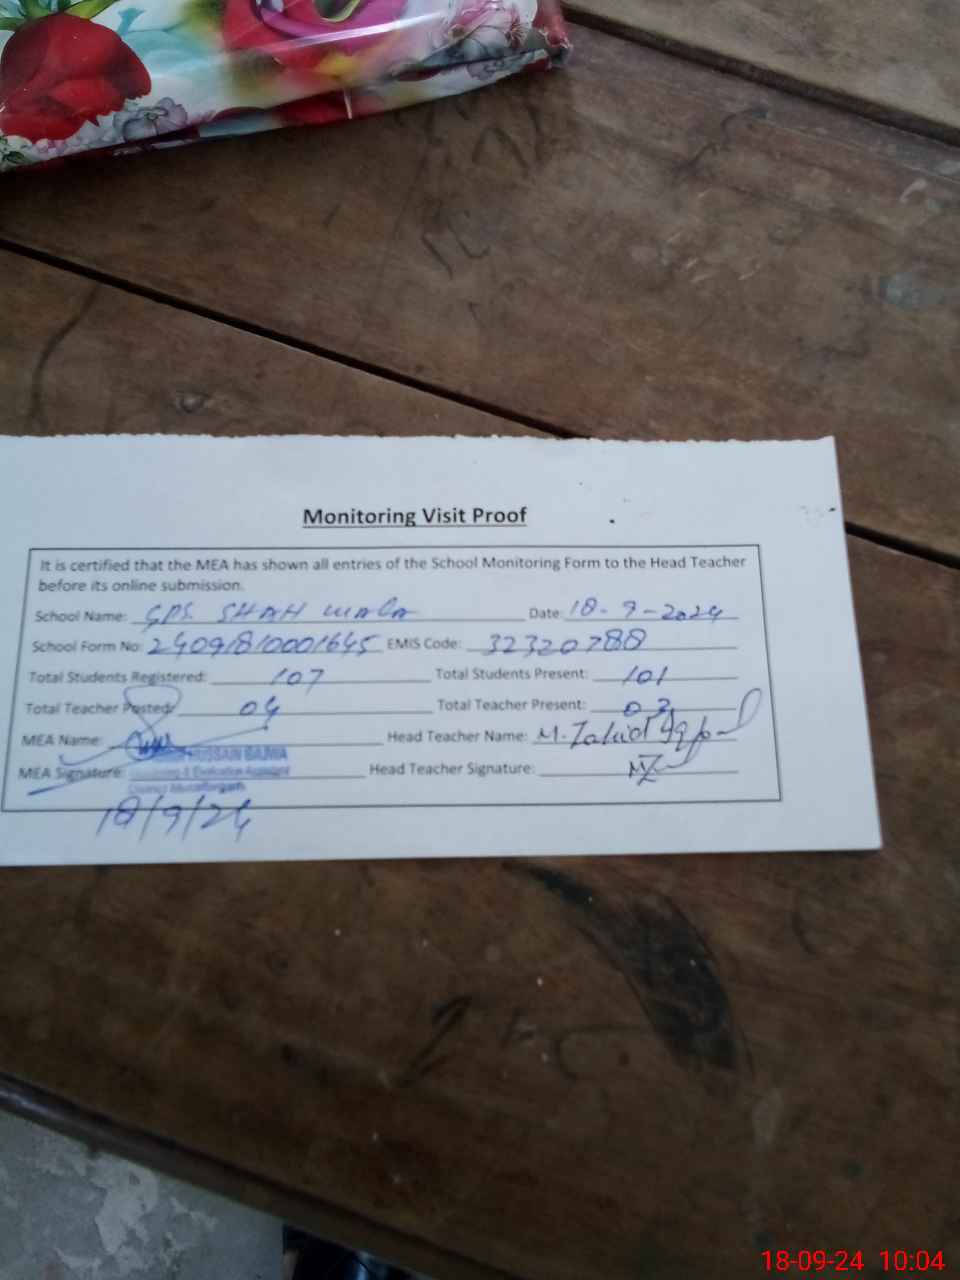 Monitoring Visit Proof
It is certified that the MEA has shown all entries of the School Monitoring Form to the Head Teacher
before its online submission.
School Name: GPS. SHAH WALA Date: 18-9-2024
School Form No: 24091810001645 EMIS Code: 32320788
Total Students Registered: 107 Total Students Present: 101
Total Teacher Posted: 04 Total Teacher Present: 03
MEA Name: Head Teacher Name: M. Zahid Iqbal
HUSSAIN BAJWA
MEA Signature: & Evaluation Assistant Head Teacher Signature: MZ
District Muzaffargarh
18/9/24
18-09-24 10:04